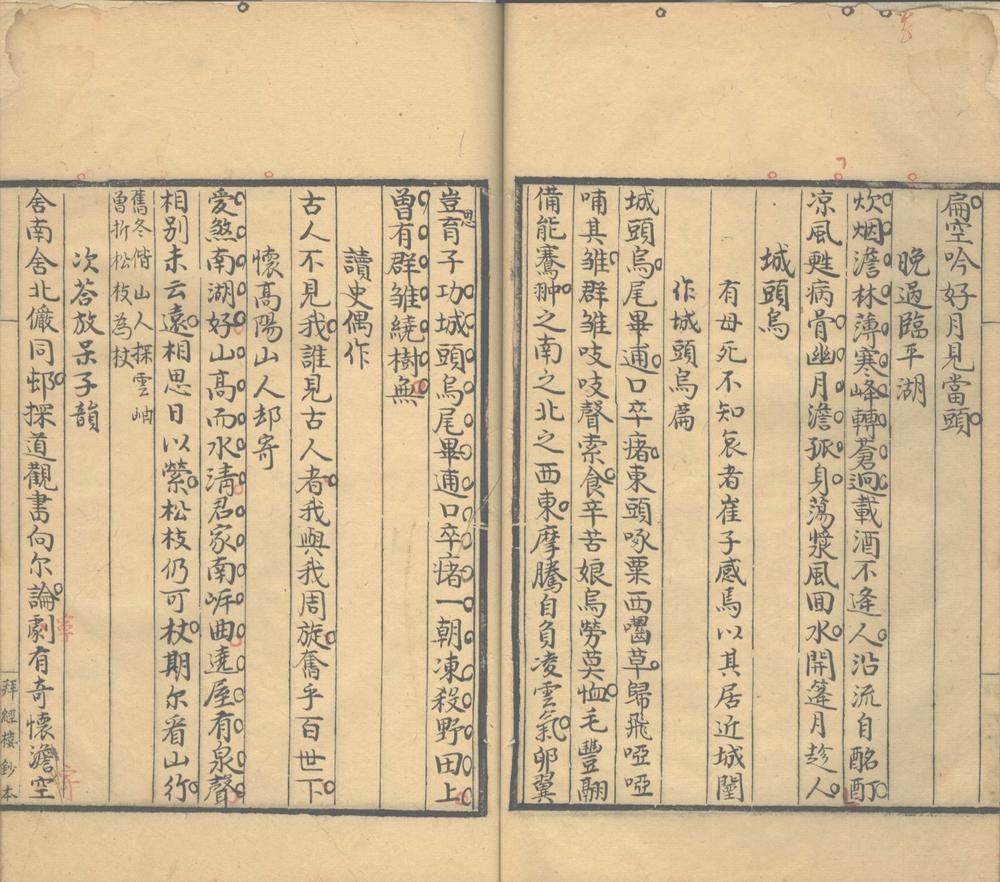 扁空吟好月見當頭
晚過臨平湖
炊烟澹林薄寒峰轉蒼迥載酒不逢人沿流自酩酊
凉風甦病骨幽月澹孤身蕩漿風回水開篷月趂人
城頭烏
有母死不知哀者崔子感焉以其居近城闉
作城頭烏篇
城頭烏尾畢逋口卒瘏東頭啄粟西噣草歸飛啞啞
哺其雛群雛吱吱聲索食辛苦娘烏勞莫恤毛豐翮
備能騫翀之南之北之西東摩騰自負凌雲氣卵翼
豈思育子功城頭烏尾畢逋口卒瘏一朝凍殺野田上
曽有群雛繞樹無
讀史偶作
古人不見我誰見古人者我與我周旋奮乎百世下
懷髙陽山人却寄
愛煞南湖好山髙而水清君家南岍曲遶屋有泉聲
相别未云遠相思日以縈松枝仍可杖期尔看山行
舊冬偕山人探雲岫
曽折松枝為杖
次荅放呆子韻
舎南舎北儼同邨探道觀書向尔論劇有奇懷澹空
拜經樓鈔本